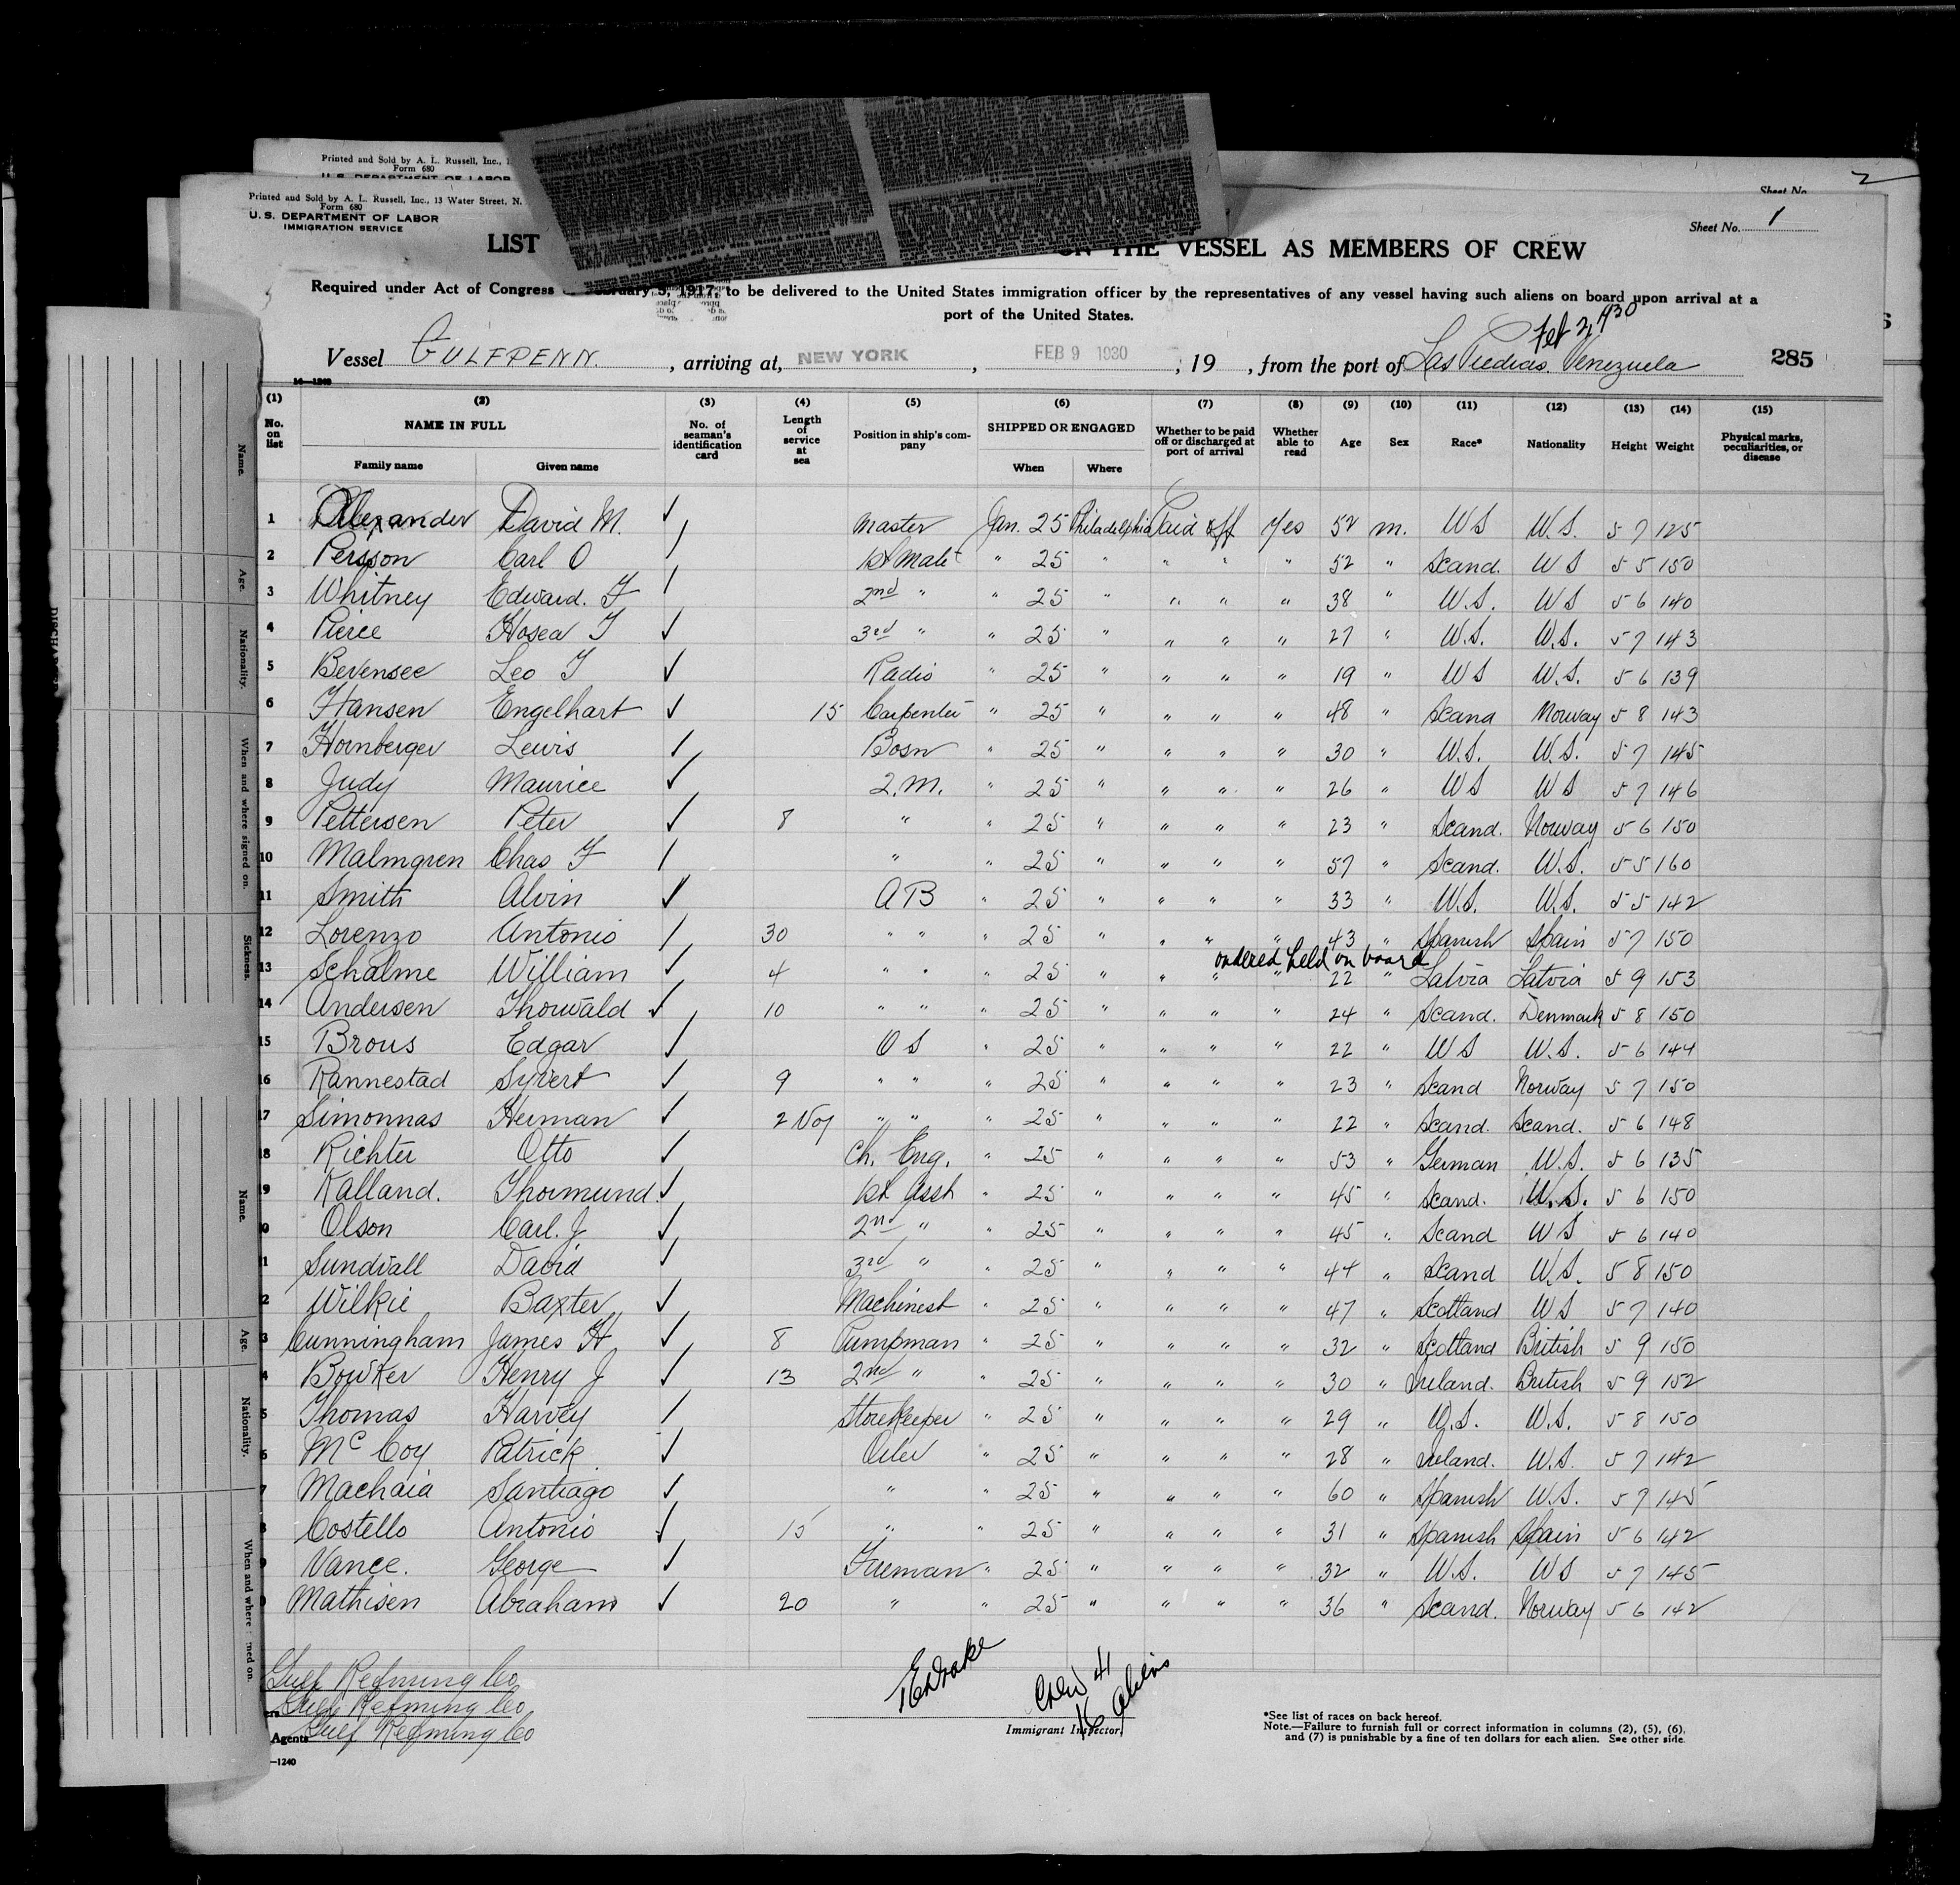 Printed and Sold by A. L. Russell, Inc., 1
Form 680
U. S. DEPARTMENT OF LABOR
Sheet No. 2
Printed and Sold by A. L. Russell, Inc., 13 Water Street, N.
Form 680
U. S. DEPARTMENT OF LABOR
IMMIGRATION SERVICE
Sheet No. 1
LIST ON THE VESSEL AS MEMBERS OF CREW
Required under Act of Congress February 5, 1917, to be delivered to the United States immigration officer by the representatives of any vessel having such aliens on board upon arrival at a
port of the United States.
Feb 2, 1930
Vessel GULFPENN. , arriving at, NEW YORK , FEB 9 1930 , 19 , from the port of Las Piedras. Venezuela 285
14—1240
(1) (2) (3) (4) (5) (6) (7) (8) (9) (10) (11) (12) (13) (14) (15)
No. on list NAME IN FULL Family name Given name No. of seaman's identification card Length of service at sea Position in ship's company SHIPPED OR ENGAGED When Where Whether to be paid off or discharged at port of arrival Whether able to read Age Sex Race* Nationality Height Weight Physical marks, peculiarities, or disease
1 Alexander David M. ✓ Master Jan. 25 Philadelphia Paid off Yes 52 m. US U.S. 5 7 125
2 Persson Carl O / 1st Mate " 25 " " " " 52 " Scand. US 5 5 150
3 Whitney Edward. F / 2nd " " 25 " " " " 38 " U.S. US 5 6 140
4 Pierce Hosea T ✓ 3rd " " 25 " " " " 27 " U.S. U.S. 5 7 143
5 Bevensee Leo T ✓ Radio " 25 " " " " 19 " US U.S. 5 6 139
6 Hansen Engelhart ✓ 15 Carpenter " 25 " " " " 48 " Scand Norway 5 8 143
7 Hornberger Lewis ✓ Bosn " 25 " " " " 30 " U.S. U.S. 5 7 145
8 Judy Maurice ✓ Q.M. " 25 " " " " 26 " US US 5 7 146
9 Pettersen Peter ✓ 8 " " 25 " " " " 23 " Scand. Norway 5 6 150
10 Malmgren Chas F / " " 25 " " " " 57 " Scand. U.S. 5 5 160
11 Smith Alvin ✓ AB " 25 " " " " 33 " U.S. U.S. 5 5 142
12 Lorenzo Antonio / 30 " " " 25 " " " " 43 " Spanish Spain 5 7 150
ordered held on board
13 Schalme William ✓ 4 " " " 25 " " " " 22 " Latvia Latvia 5 9 153
14 Andersen Thorwald ✓ 10 " " " 25 " " " " 24 " Scand. Denmark 5 8 150
15 Brous Edgar ✓ OS " 25 " " " " 22 " US U.S. 5 6 144
16 Rannestad Syvert ✓ 9 " " " 25 " " " " 23 " Scand Norway 5 7 150
17 Simonnas Herman ✓ 2 Voy " " " 25 " " " " 22 " Scand. Scand. 5 6 148
18 Richter Otto ✓ Ch. Eng. " 25 " " " " 53 " German U.S. 5 6 135
9 Kalland. Thormund. ✓ 1st Asst " 25 " " " " 45 " Scand. U.S. 5 6 150
0 Olson Carl. J ✓ 2nd " " 25 " " " " 45 " Scand US 5 6 140
1 Sundvall David ✓ 3rd " " 25 " " " " 44 " Scand U.S. 5 8 150
2 Wilkie Baxter ✓ Machinest " 25 " " " " 47 " Scotland US 5 7 140
3 Cunningham James H ✓ 8 Pumpman " 25 " " " " 32 " Scotland British 5 9 150
4 Bowker Henry J ✓ 13 2nd " " 25 " " " " 30 " Ireland. British 5 9 152
5 Thomas Harvey / Storekeeper " 25 " " " " 29 " U.S. U.S. 5 8 150
6 McCoy Patrick ✓ Oiler " 25 " " " " 28 " Ireland. U.S. 5 7 142
7 Machaia Santiago ✓ " 25 " " " " 60 " Spanish U.S. 5 7 145
8 Costello Antonio ✓ 15 " " 25 " " " " 31 " Spanish Spain 5 6 142
9 Vance. George ✓ Fireman " 25 " " " " 32 " U.S. US 5 7 145
Mathisen Abraham ✓ 20 " " 25 " " " " 36 " Scand. Norway 5 6 142
Gulf Refining Co
Gulf Refining Co
Agents Gulf Refining Co
—1240
Crew 41
16 aliens
Immigrant Inspector
*See list of races on back hereof.
Note.—Failure to furnish full or correct information in columns (2), (5), (6),
and (7) is punishable by a fine of ten dollars for each alien. See other side.
Name.
Age.
Nationality.
When and where signed on.
Sickness.
Name.
Age.
Nationality.
When and where signed on.